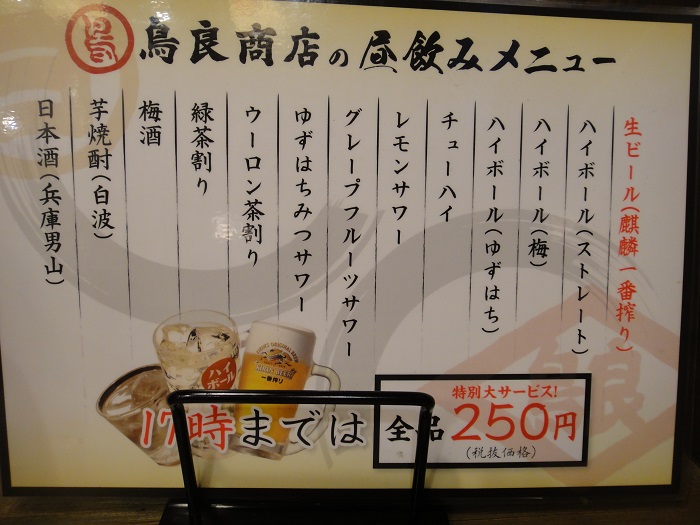 鳥
鳥良商店の昼飲みメニュー
生ビール(麒麟一番搾り)
ハイボール(ストレート)
ハイボール(梅)
ハイボール(ゆずはち)
チューハイ
レモンサワー
グレープフルーツサワー
ゆずはちみつサワー
ウーロン茶割り
緑茶割り
梅酒
芋焼酎(白波)
日本酒(兵庫男山)
ハイ
ボール
一番搾り
17時までは
特別大サービス!
全品250円
(税抜価格)
鳥良